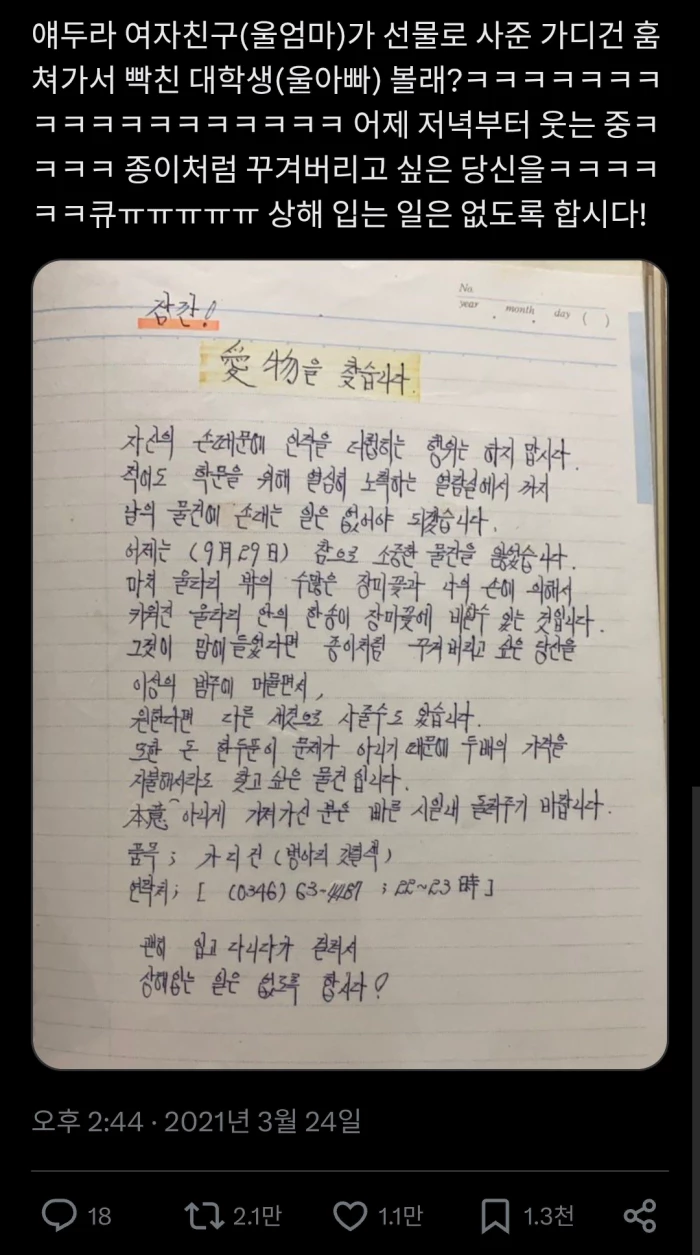 얘두라 여자친구(울엄마)가 선물로 사준 가디건 훔
쳐가서 빡친 대학생(울아빠) 볼래?ㅋㅋㅋㅋㅋㅋㅋ
ㅋㅋㅋㅋㅋㅋㅋㅋㅋㅋㅋ 어제 저녁부터 웃는 중ㅋ
ㅋㅋㅋ 종이처럼 꾸겨버리고 싶은 당신을ㅋㅋㅋㅋ
ㅋㅋ큐ㅠㅠㅠㅠㅠ 상해 입는 일은 없도록 합시다!
No.
year . month . day ( )
잠깐!
愛物을 찾습니다.
자신의 손때문에 안작을 더럽히는 행위는 하지 맙시다.
적어도 학문을 위해 열심히 노력하는 열람실에서 까지
남의 물건에 손대는 일은 없어야 되겠습니다.
어제는 (9月29日) 참으로 소중한 물건을 잃었습니다.
마치 울타리 밖의 수많은 장미꽃과 나의 손에 의해서
키워진 울타리 안의 한송이 장미꽃에 비할수 있는 것입니다.
그것이 맘에들었다면 종이처럼 꾸겨버리고 싶은 당신을
이성의 범주에 머물면서,
원한다면 다른 새것으로 사줄수도 있습니다.
또한 돈 한두푼이 문제가 아니기 때문에 두배의 가격을
지불해서라도 찾고 싶은 물건입니다.
本意 아니게 가져가신 분은 빠른 시일내 돌려주기 바랍니다.
품목; 가디건 (병아리 깃털색)
연락처; [ (0346) 63-4487 ; 22~23 時 ]
괜히 입고 다니다가 걸려서
상해입는 일은 없도록 합시다!
오후 2:44 · 2021년 3월 24일
18 2.1만 1.1만 1.3천